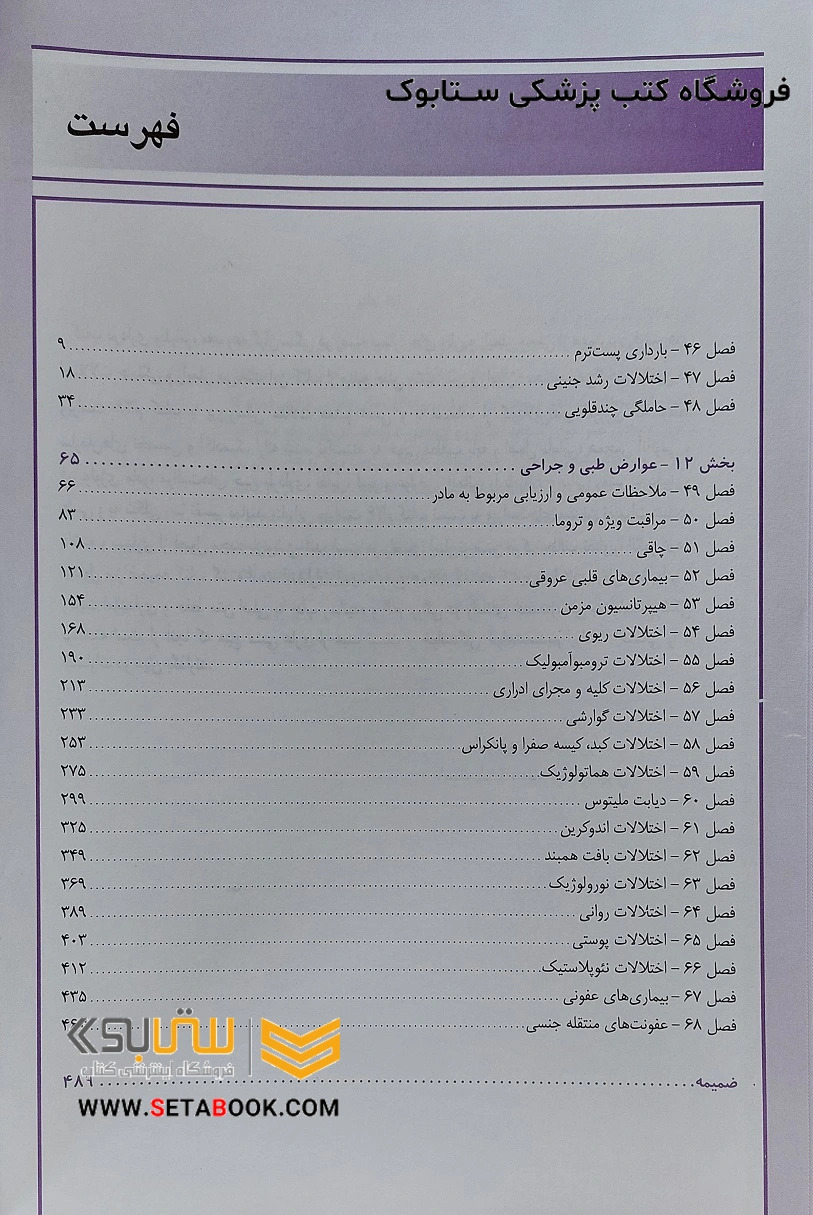 فروشگاه کتب پزشکی ستابوک
فهرست
فصل ۴۶ – بارداری پست‌ترم ........ ۹
فصل ۴۷ – اختلالات رشد جنینی ........ ۱۸
فصل ۴۸ – حاملگی چندقلویی ........ ۳۴
بخش ۱۲ – عوارض طبی و جراحی ........ ۶۵
فصل ۴۹ – ملاحظات عمومی و ارزیابی مربوط به مادر ........ ۶۶
فصل ۵۰ – مراقبت ویژه و تروما ........ ۸۳
فصل ۵۱ – چاقی ........ ۱۰۸
فصل ۵۲ – بیماری‌های قلبی عروقی ........ ۱۲۱
فصل ۵۳ – هیپرتانسیون مزمن ........ ۱۵۴
فصل ۵۴ – اختلالات ریوی ........ ۱۶۸
فصل ۵۵ – اختلالات ترومبوآمبولیک ........ ۱۹۰
فصل ۵۶ – اختلالات کلیه و مجرای ادراری ........ ۲۱۳
فصل ۵۷ – اختلالات گوارشی ........ ۲۳۳
فصل ۵۸ – اختلالات کبد، کیسه صفرا و پانکراس ........ ۲۵۳
فصل ۵۹ – اختلالات هماتولوژیک ........ ۲۷۵
فصل ۶۰ – دیابت ملیتوس ........ ۲۹۹
فصل ۶۱ – اختلالات اندوکرین ........ ۳۲۵
فصل ۶۲ – اختلالات بافت همبند ........ ۳۴۹
فصل ۶۳ – اختلالات نورولوژیک ........ ۳۶۹
فصل ۶۴ – اختلالات روانی ........ ۳۸۹
فصل ۶۵ – اختلالات پوستی ........ ۴۰۳
فصل ۶۶ – اختلالات نئوپلاستیک ........ ۴۱۲
فصل ۶۷ – بیماری‌های عفونی ........ ۴۳۵
فصل ۶۸ – عفونت‌های منتقله جنسی ........
ستابوک
فروشگاه اینترنتی کتاب
ضمیمه ........ ۴۸۹
WWW.SETABOOK.COM